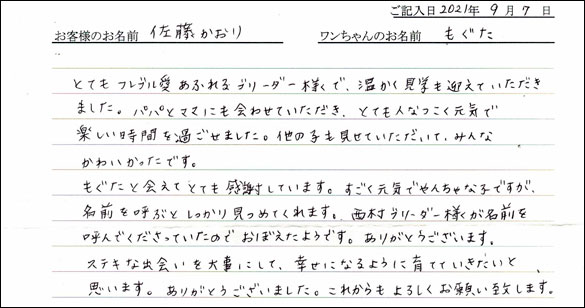 ご記入日2021年 9月 7日
お客様のお名前 佐藤かおり ワンちゃんのお名前 もぐた
とても フレブル愛あふれるブリーダー様で、温かく見学も迎えていただき
ました。パパとママにも会わせていただき、とても人なつこく元気で
楽しい時間を過ごせました。他の子も見せていただいて、みんな
かわいかったです。
もぐたと会えてとても感謝しています。すごく元気でやんちゃな子ですが、
名前を呼ぶと しっかり見つめてくれます。西村ブリーダー様が名前を
呼んでくださっていたので おぼえたようです。ありがとうございます。
ステキな出会いを大事にして、幸せになるように育てていきたいと
思います。ありがとうございました。これからもよろしくお願い致します。